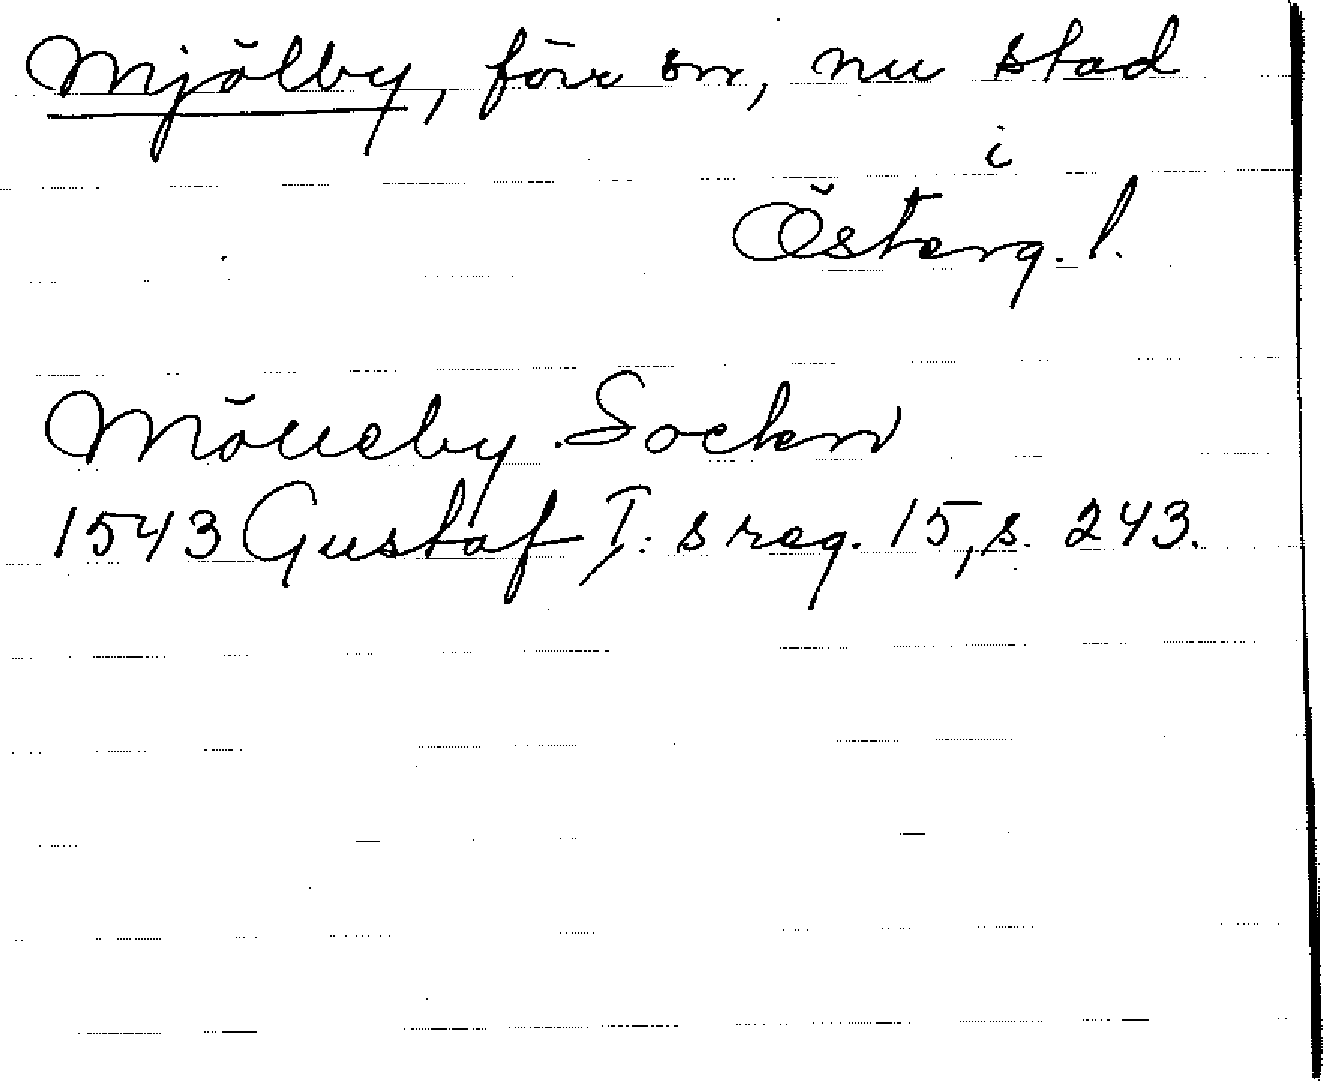 Mjölby, förr sn, nu stad
i
Österg. l.
Mölleby Sockn
1543 Gustaf I:s reg. 15, s. 243.